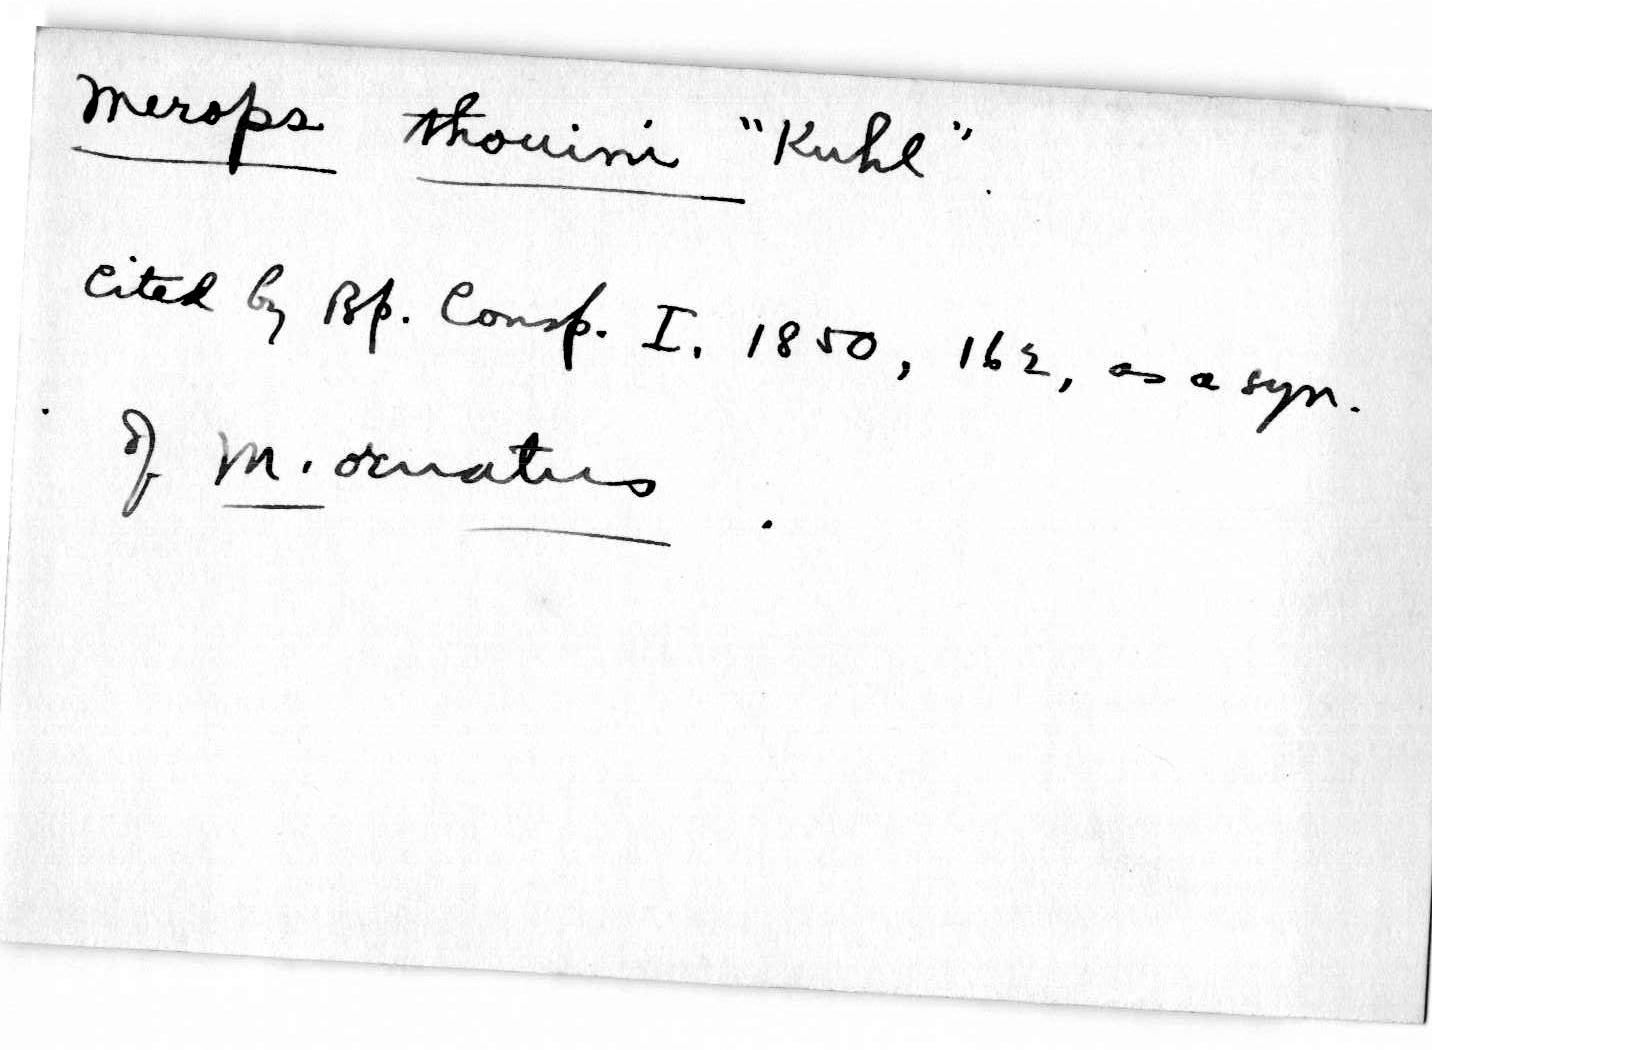 Merops thouini "Kuhl".
cited by Bp. Consp. I. 1850, 162, as a syn.
of M. ornatus.